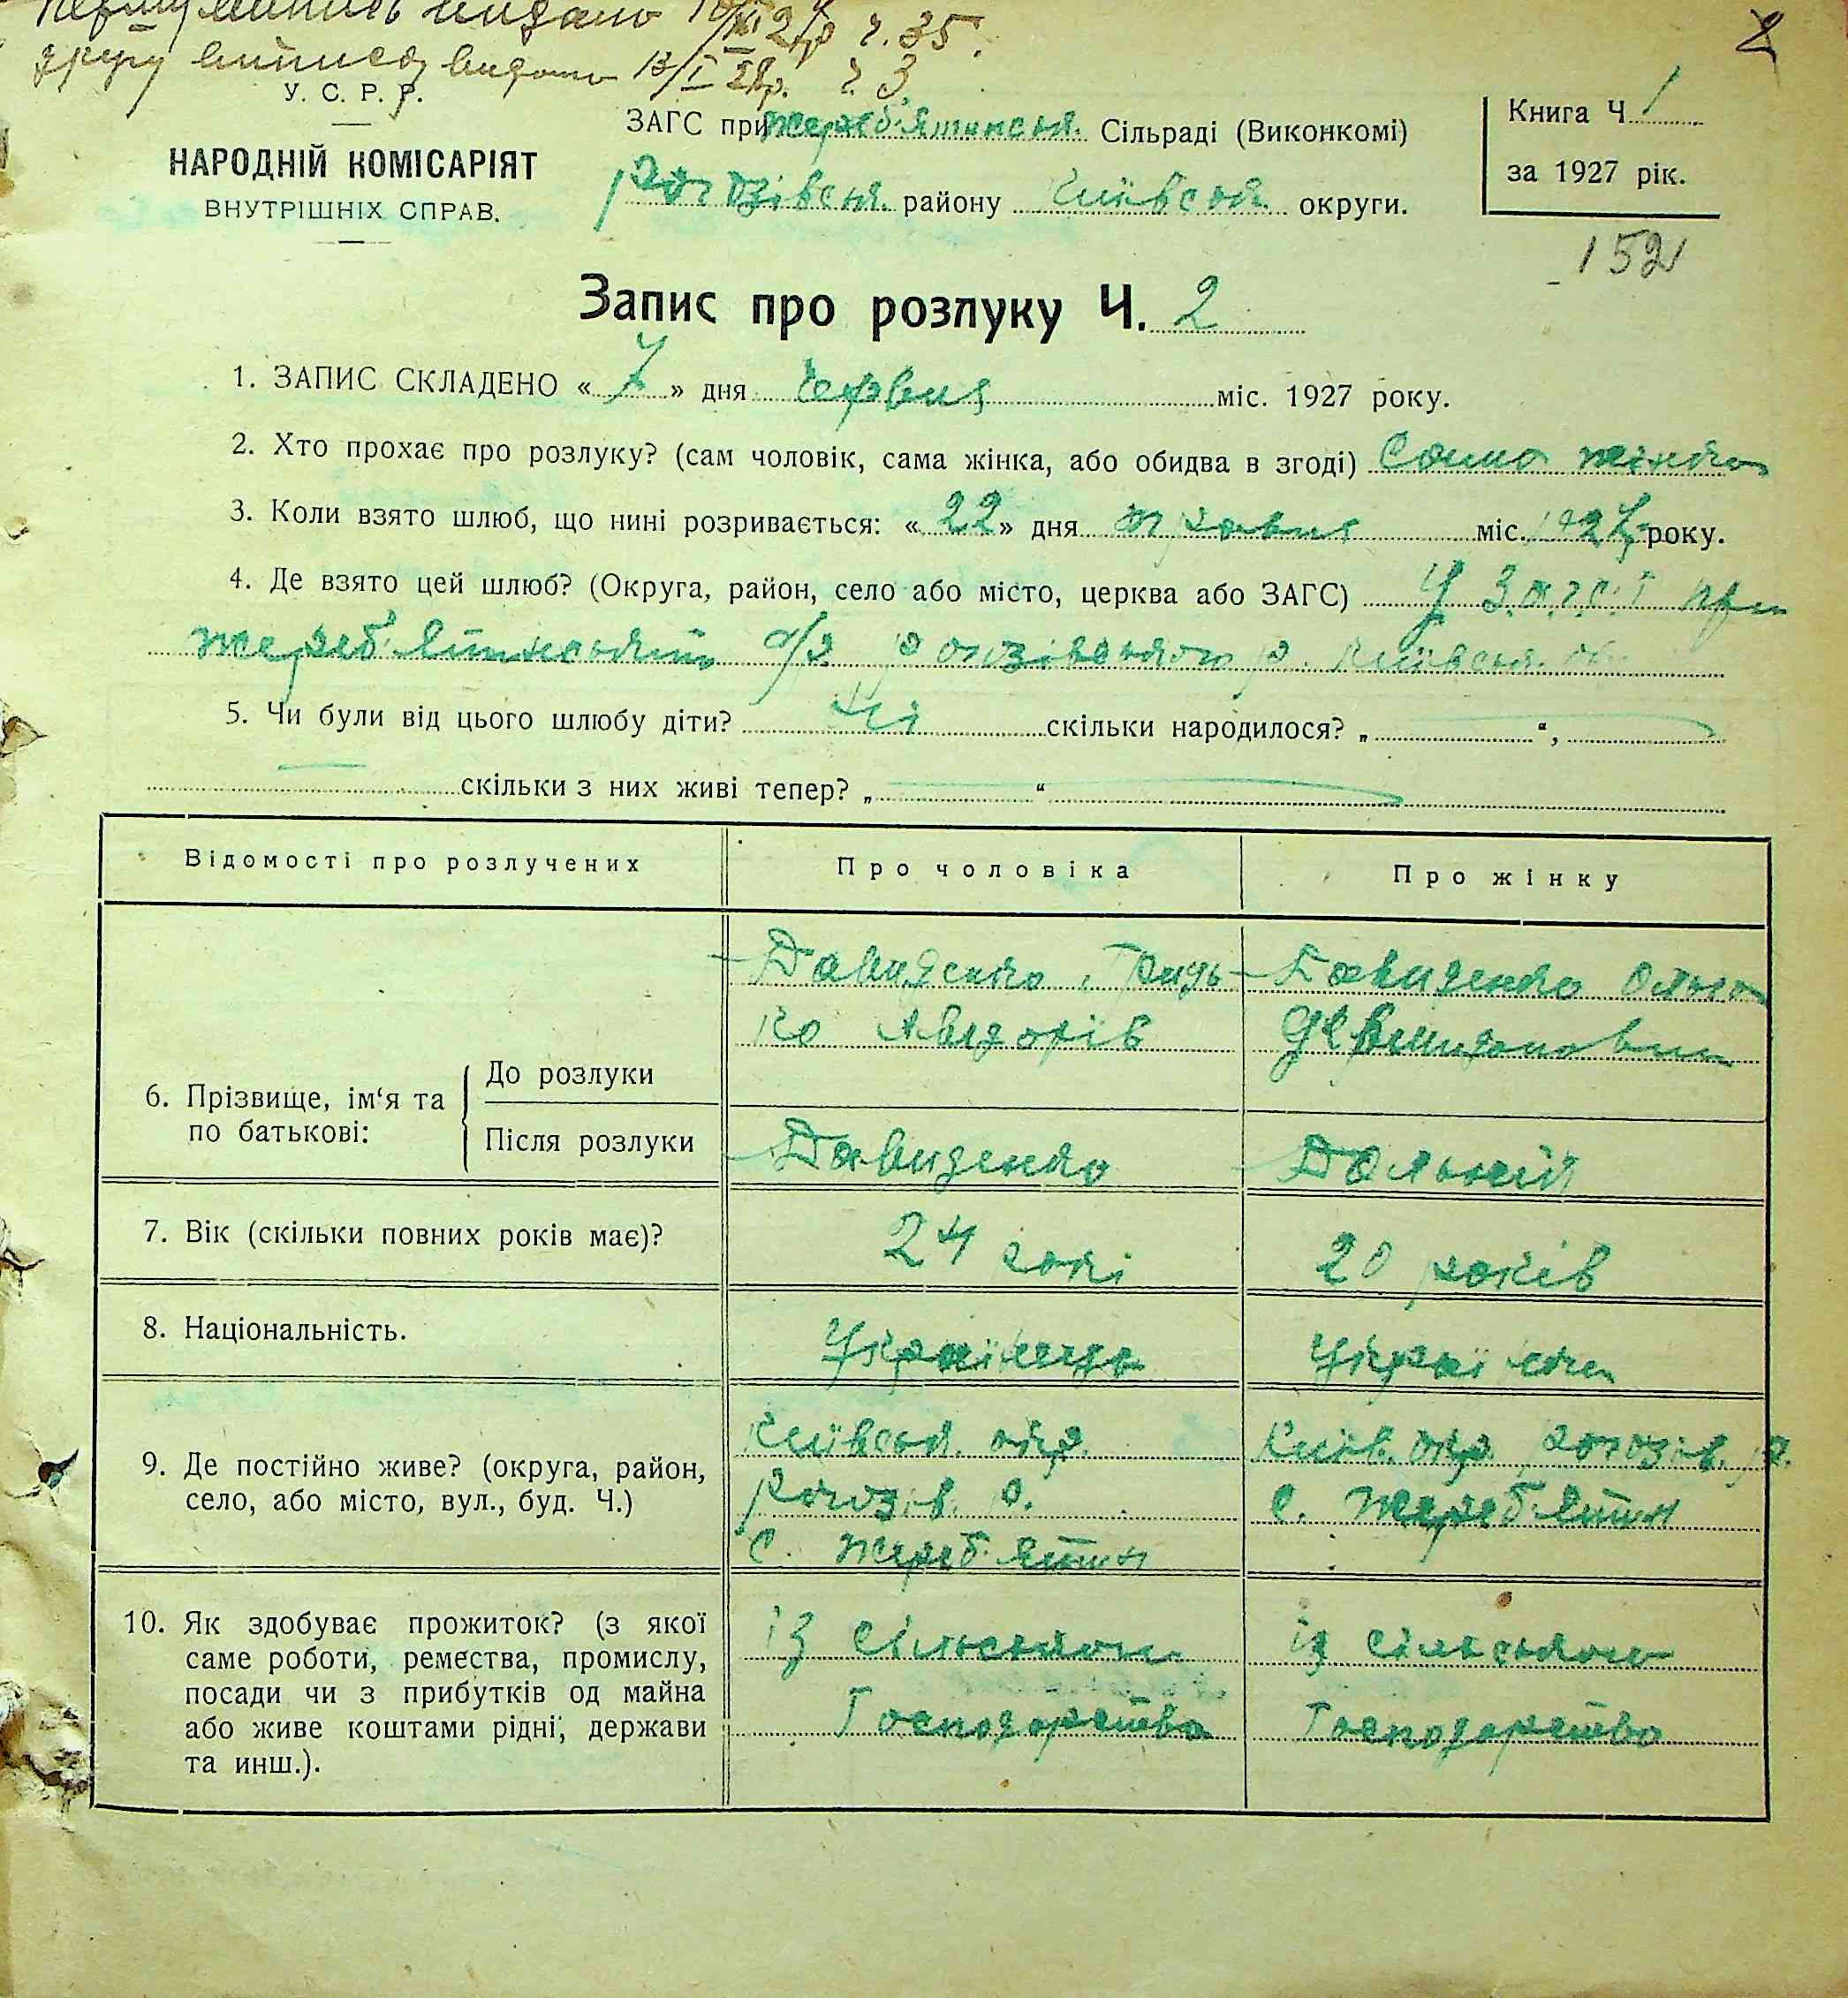 Першу випись видано 10/XII 27р ч. 35.
другу виписъ видано 13/I 28р. ч. 3
2
У. С. Р. Р.
НАРОДНІЙ КОМІСАРІЯТ
ВНУТРІШНІХ СПРАВ.
ЗАГС при Жереб'ятинськ. Сільраді (Виконкомі)
Рогозівськ. району Київськ. округи.
Книга Ч 1
за 1927 рік.
152
Запис про розлуку Ч. 2
1. ЗАПИС СКЛАДЕНО « 7 » дня Червня міс. 1927 року.
2. Хто прохає про розлуку? (сам чоловік, сама жінка, або обидва в згоді) Сама жінка
3. Коли взято шлюб, що нині розривається: « 22 » дня травня міс. 1927 року.
4. Де взято цей шлюб? (Округа, район, село або місто, церква або ЗАГС) У З.А.Г.С.І при
Жереб'ятинській с/р Рогозівського р. Київськ. окр
5. Чи були від цього шлюбу діти? Ні скільки народилося? „ “,
скільки з них живі тепер? „ “
Відомості про розлучених Про чоловіка Про жінку
6. Прізвище, ім‘я та по батькові:
До розлуки
Давиденко Грицько
ко Авидорів
Давиденко Ольга
Після розлуки
Давиденко
Дольній
7. Вік (скільки повних років має)? 24 годі 20 років
8. Національність. Українець Українка
9. Де постійно живе? (округа, район,
село, або місто, вул., буд. Ч.)
Київськ. окр.
Рогозів. р.
с. Жереб'ятин
Київ. окр. Рогозів. р.
с. Жереб'ятин
10. Як здобуває прожиток? (з якої
саме роботи, ремества, промислу,
посади чи з прибутків од майна
або живе коштами рідні, держави
та инш.).
із сільського
Господарства
із сільського
Господарства